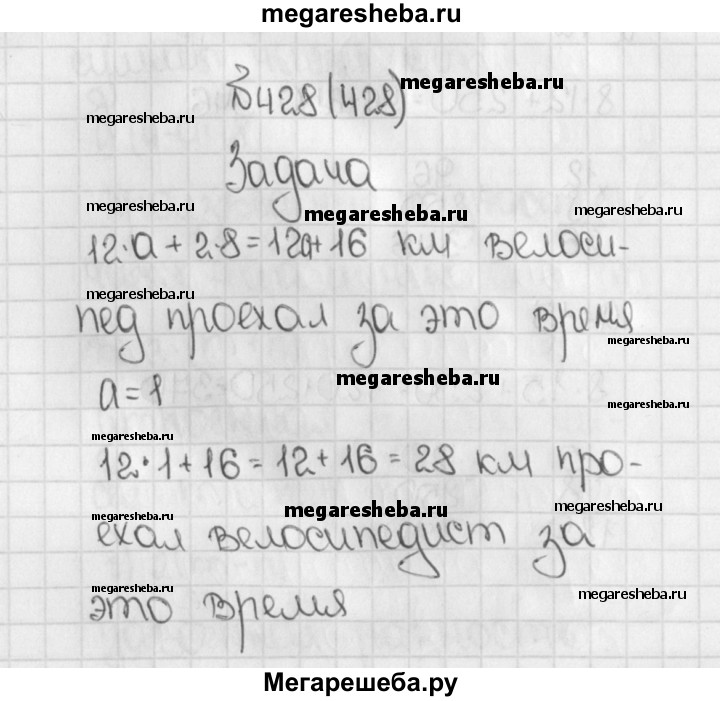 megaresheba.ru
№428 (428) megaresheba.ru
megaresheba.ru
Задача
megaresheba.ru
megaresheba.ru megaresheba.ru
12·a + 2·8 = 12a + 16 км велоси-
megaresheba.ru
пед проехал за это время
megaresheba.ru
a = 1
megaresheba.ru
12·1 + 16 = 12 + 16 = 28 км про-
megaresheba.ru megaresheba.ru megaresheba.ru
ехал велосипедист за
megaresheba.ru megaresheba.ru
это время
Мегарешеба.ру